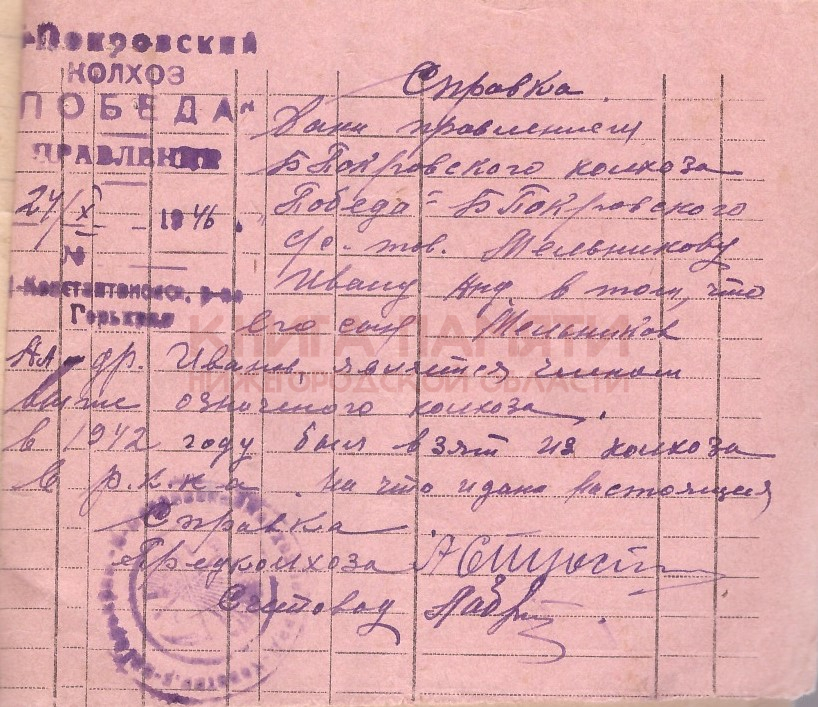 -Покровский
КОЛХОЗ
ПОБЕДА"
ПРАВЛЕНИЕ
24/X 1946.
№
-Константиновск. р-на
Горьков
Справка.
Дана правлением
Б Покровского колхоза
"Победа" Б Покровского
с/с. тов. Мельникову
Ивану Анд в том, что
его сын Мельников
Ал-др. Иванов, является членом
выше означеного колхоза.
в 1942 году был взят из колхоза
в р.к.к.а. на что и дана настоящая
Справка
Предколхоза
Счетовод
КНИГА ПАМЯТИ
НИЖЕГОРОДСКОЙ ОБЛАСТИ